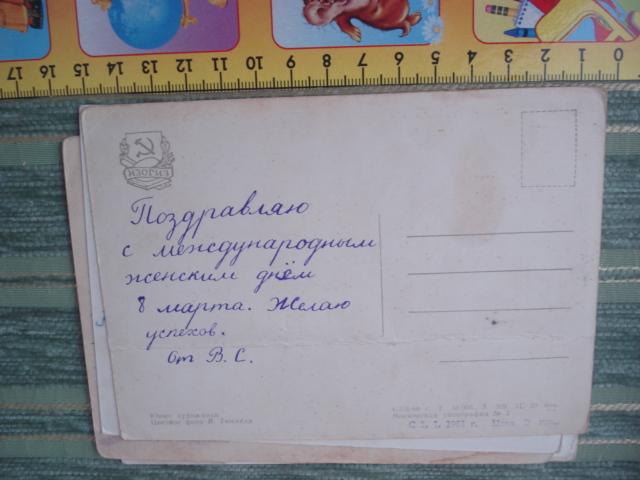 17 16 15 14 13 12 11 10 9 8 7 6 5 4 3 2 1 0
ИЗОГИЗ
Поздравляю
с международным
женским днём
8 марта. Желаю
успехов.
От В.С.
Юные художники
Цветное фото И.
Московская типография № 2
С 1. 1. 1961 г. Цена